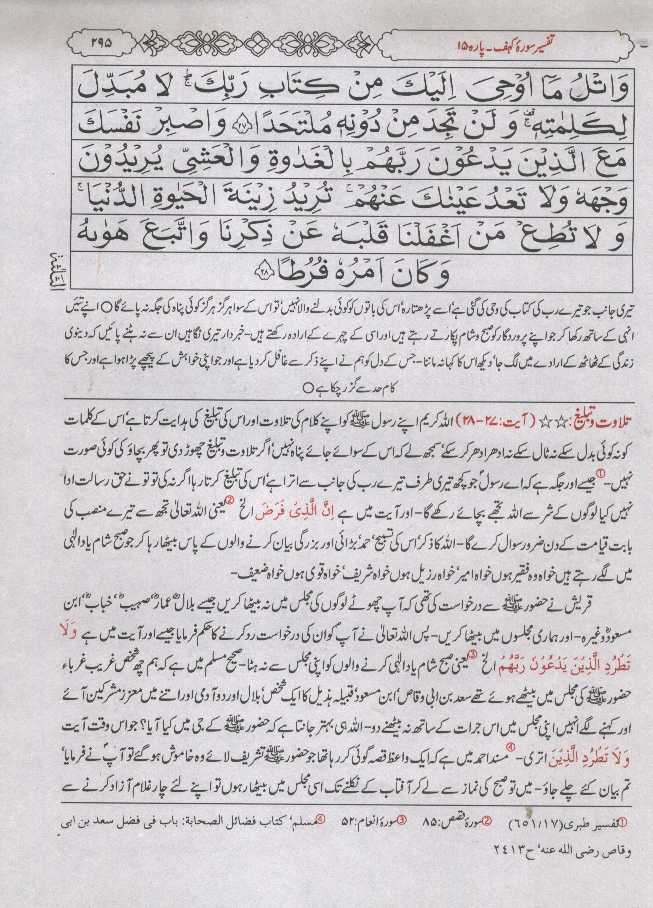 تفسیر سورۂ کہف۔ پارہ ۱۵
۲۹۵
وَاتْلُ مَآ اُوْحِیَ اِلَیْكَ مِنْ كِتَابِ رَبِّكَ ۚ لَا مُبَدِّلَ
لِكَلِمٰتِهٖ ۚ وَ لَنْ تَجِدَ مِنْ دُوْنِهٖ مُلْتَحَدًا ۲۷ وَاصْبِرْ نَفْسَكَ
مَعَ الَّذِیْنَ یَدْعُوْنَ رَبَّهُمْ بِالْغَدٰوةِ وَالْعَشِیِّ یُرِیْدُوْنَ
وَجْهَهٗ وَلَا تَعْدُ عَیْنٰكَ عَنْهُمْ ۚ تُرِیْدُ زِیْنَةَ الْحَیٰوةِ الدُّنْیَا ۚ
وَ لَا تُطِعْ مَنْ اَغْفَلْنَا قَلْبَهٗ عَنْ ذِكْرِنَا وَاتَّبَعَ هَوٰىهُ
وَكَانَ اَمْرُهٗ فُرُطًا ۲۸
تیری جانب جو تیرے رب کی کتاب کی وحی کی گئی ہے' اسے پڑھتا رہ' اس کی باتوں کو کوئی بدلنے والا نہیں' تو اس کے سوا ہرگز ہرگز کوئی پناہ کی جگہ نہ پائے گا ○ اپنے تئیں
انہی کے ساتھ رکھا کر جو اپنے پروردگار کو صبح و شام پکارتے رہتے ہیں اور اسی کے چہرے کے ارادہ رکھتے ہیں- خبردار تیری نگاہیں ان سے نہ ہٹنے پائیں کہ دینوی
زندگی کے ٹھاٹھ کے ارادے میں لگ جا' دیکھ اس کا کہا نہ ماننا- جس کے دل کو ہم نے اپنے ذکر سے غافل کر دیا ہے اور جو اپنی خواہش کے پیچھے پڑا ہوا ہے اور جس کا
کام حد سے گزر چکا ہے ○
تلاوت و تبلیغ: ☆☆ (آیت: ۲۷-۲۸) اللہ کریم اپنے رسول ﷺ کو اپنے کلام کی تلاوت اور اس کی تبلیغ کی ہدایت کرتا ہے' اس کے کلمات
کو نہ کوئی بدل سکے نہ ٹال سکے نہ ادھر ادھر کر سکے' سمجھ لے کہ اس کے سوائے جائے پناہ نہیں' اگر تلاوت و تبلیغ چھوڑ دی تو پھر بچاؤ کی کوئی صورت
نہیں-① جیسے اور جگہ ہے کہ اے رسول' جو کچھ تیری طرف تیرے رب کی جانب سے اترا ہے' اس کی تبلیغ کرتا رہ' اگر نہ کی تو تو نے حق رسالت ادا
نہیں کیا' لوگوں کے شر سے اللہ تجھے بچائے رکھے گا- اور آیت میں ہے اِنَّ الَّذِیْ فَرَضَ الخ ② یعنی اللہ تعالیٰ تجھ سے تیرے منصب کی
بابت قیامت کے دن ضرور سوال کرے گا- اللہ کا ذکر' اس کی تسبیح' حمد' بڑائی اور بزرگی بیان کرنے والوں کے پاس بیٹھا رہا کر جو صبح شام یاد الٰہی
میں لگے رہتے ہیں خواہ وہ فقیر ہوں خواہ امیر' خواہ رزیل ہوں خواہ شریف' خواہ قوی ہوں خواہ ضعیف-
قریش نے حضور ﷺ سے درخواست کی تھی کہ آپ چھوٹے لوگوں کی مجلس میں نہ بیٹھا کریں جیسے بلال' عمار' صہیب' خباب' ابن
مسعود وغیرہ- اور ہماری مجلسوں میں بیٹھا کریں- پس اللہ تعالیٰ نے آپ کو ان کی درخواست رد کرنے کا حکم فرمایا جیسے اور آیت میں ہے وَلَا
تَطْرُدِ الَّذِیْنَ یَدْعُوْنَ رَبَّهُمْ الخ ③ یعنی صبح شام یاد الٰہی کرنے والوں کو اپنی مجلس سے نہ ہٹا- صحیح مسلم میں ہے کہ ہم چھ شخص غریب غرباء
حضور ﷺ کی مجلس میں بیٹھے ہوئے تھے سعد بن ابی وقاص' ابن مسعود' قبیلہ ہذیل کا ایک شخص' بلال اور دو آدمی اور اتنے میں معزز مشرکین آئے
اور کہنے لگے انہیں اپنی مجلس میں اس جرات کے ساتھ نہ بیٹھنے دو- اللہ ہی بہتر جانتا ہے کہ حضور ﷺ کے جی میں کیا آیا؟ جو اس وقت آیت
وَلَا تَطْرُدِ الَّذِیْنَ اتری-④ مسند احمد میں ہے کہ ایک واعظ قصہ گوئی کر رہا تھا جو حضور ﷺ تشریف لائے وہ خاموش ہو گئے تو آپ نے فرمایا'
تم بیان کئے چلے جاؤ- میں تو صبح کی نماز سے لے کر آفتاب کے نکلنے تک اسی مجلس میں بیٹھا رہوں تو اپنے لئے چار غلام آزاد کرنے سے
① تفسیر طبری (۶۵۱/۱۷) ② سورۂ قصص: ۸۵ ③ سورۂ انعام: ۵۲ ④ مسلم' کتاب فضائل الصحابة: باب فی فضل سعد بن ابی
وقاص رضی الله عنه' ح ۲۴۱۳